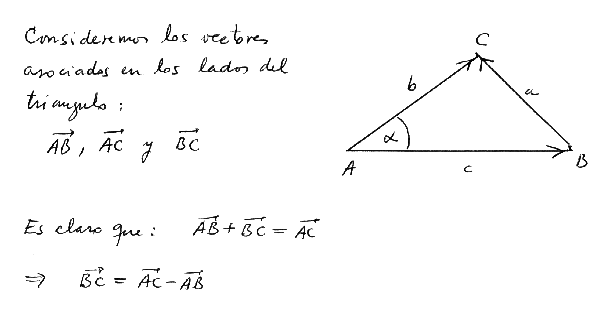 Consideremos los vectores
asociados en los lados del
triangulo:
$\overrightarrow{AB}$, $\overrightarrow{AC}$ y $\overrightarrow{BC}$
C
b
a
α
A
c
B
Es claro que: $\overrightarrow{AB} + \overrightarrow{BC} = \overrightarrow{AC}$
⇒ $\overrightarrow{BC} = \overrightarrow{AC} - \overrightarrow{AB}$